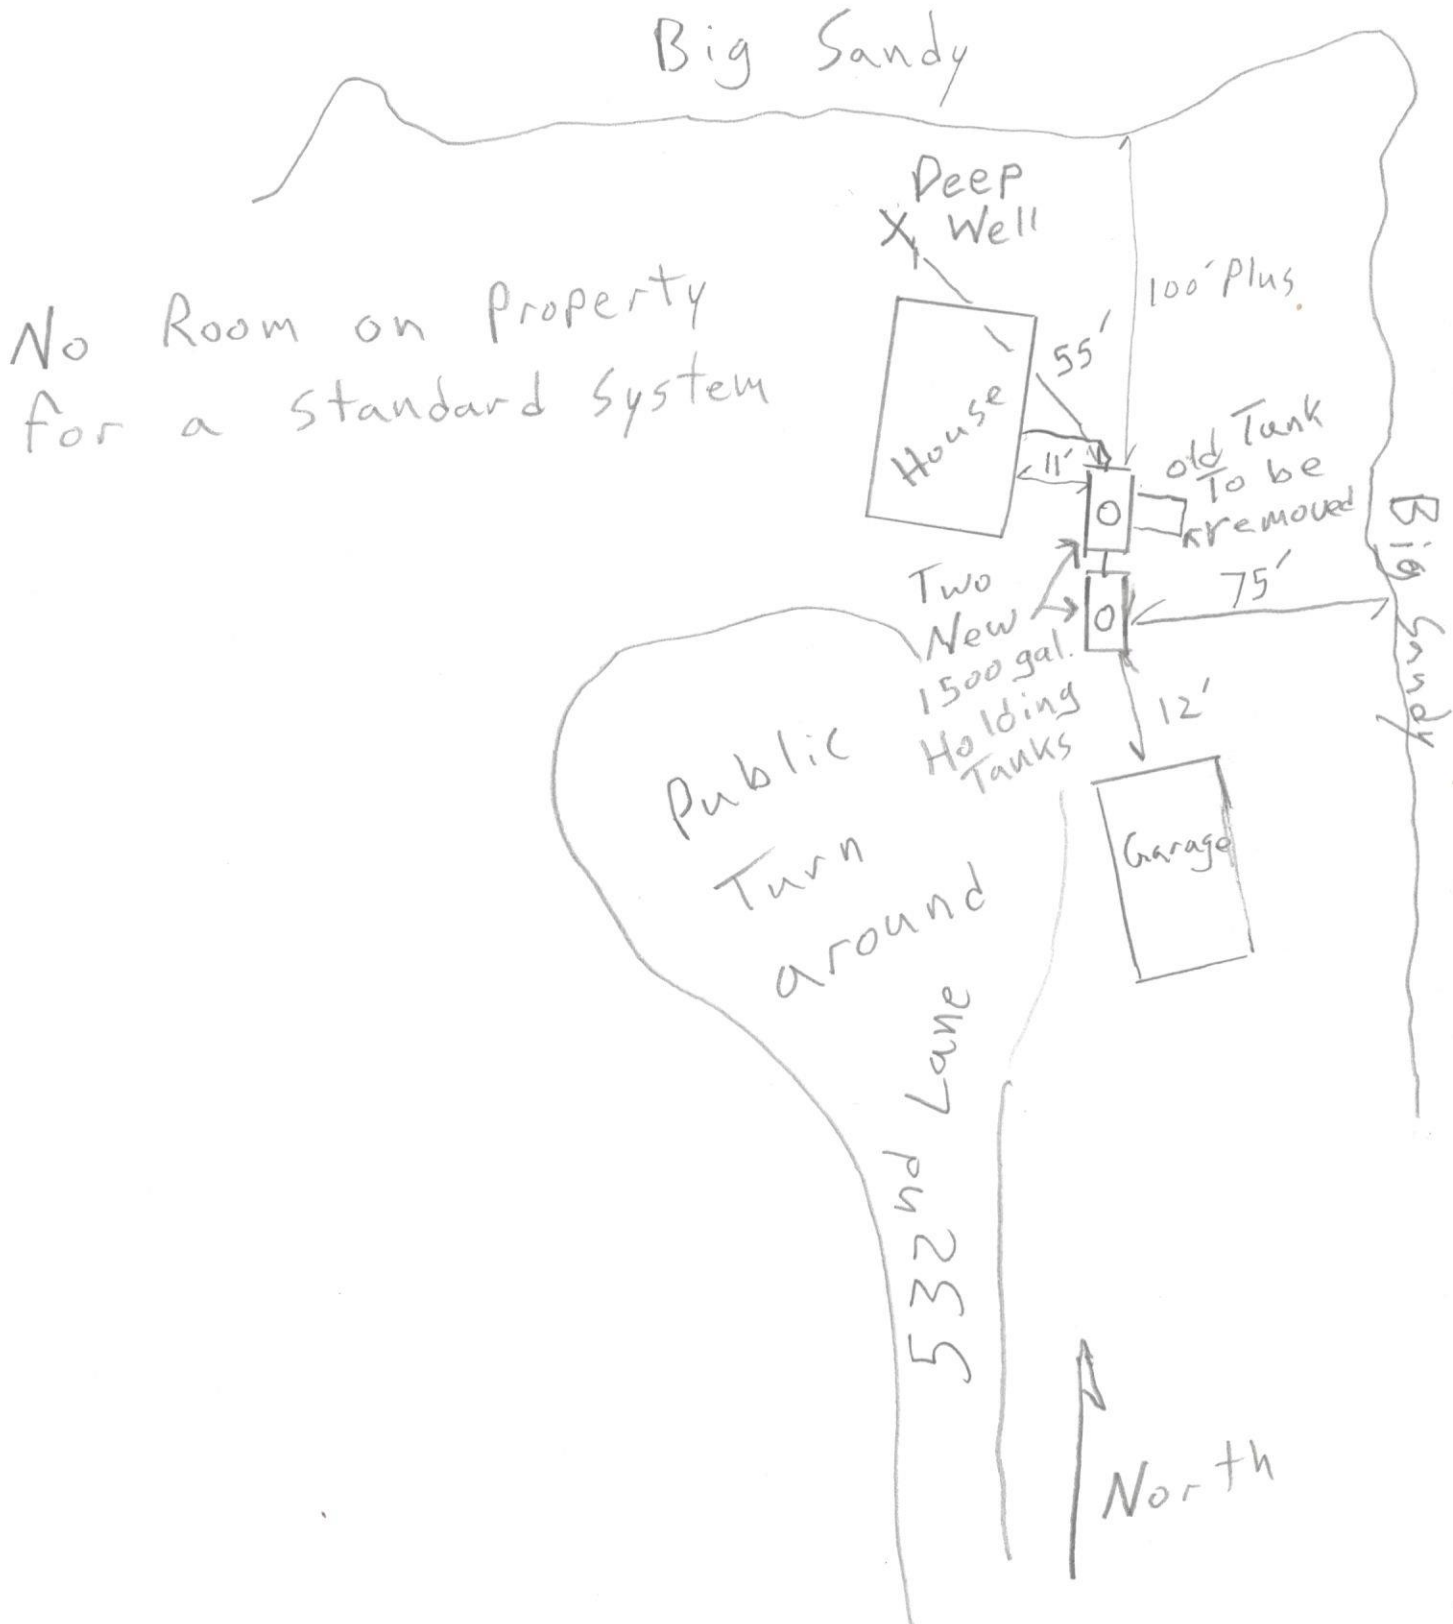 Big Sandy
Deep
X Well
100' Plus.
No Room on Property
for a Standard System
55'
House
11'
old Tank
To be
removed
Big Sandy
75'
Two
New
1500 gal.
Holding
Tanks
12'
Public
Turn
around
Garage
532nd Lane
North